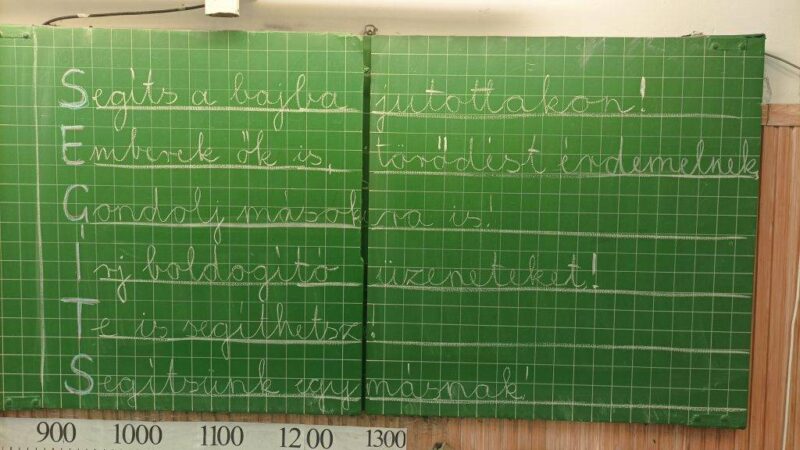 Segíts a bajba jutottakon!
Emberek ők is, törődést érdemelnek
Gondolj másokra is!
Írj boldogító üzeneteket!
Te is segíthetsz.
Segítsünk egymásnak!
900 1000 1100 1200 1300